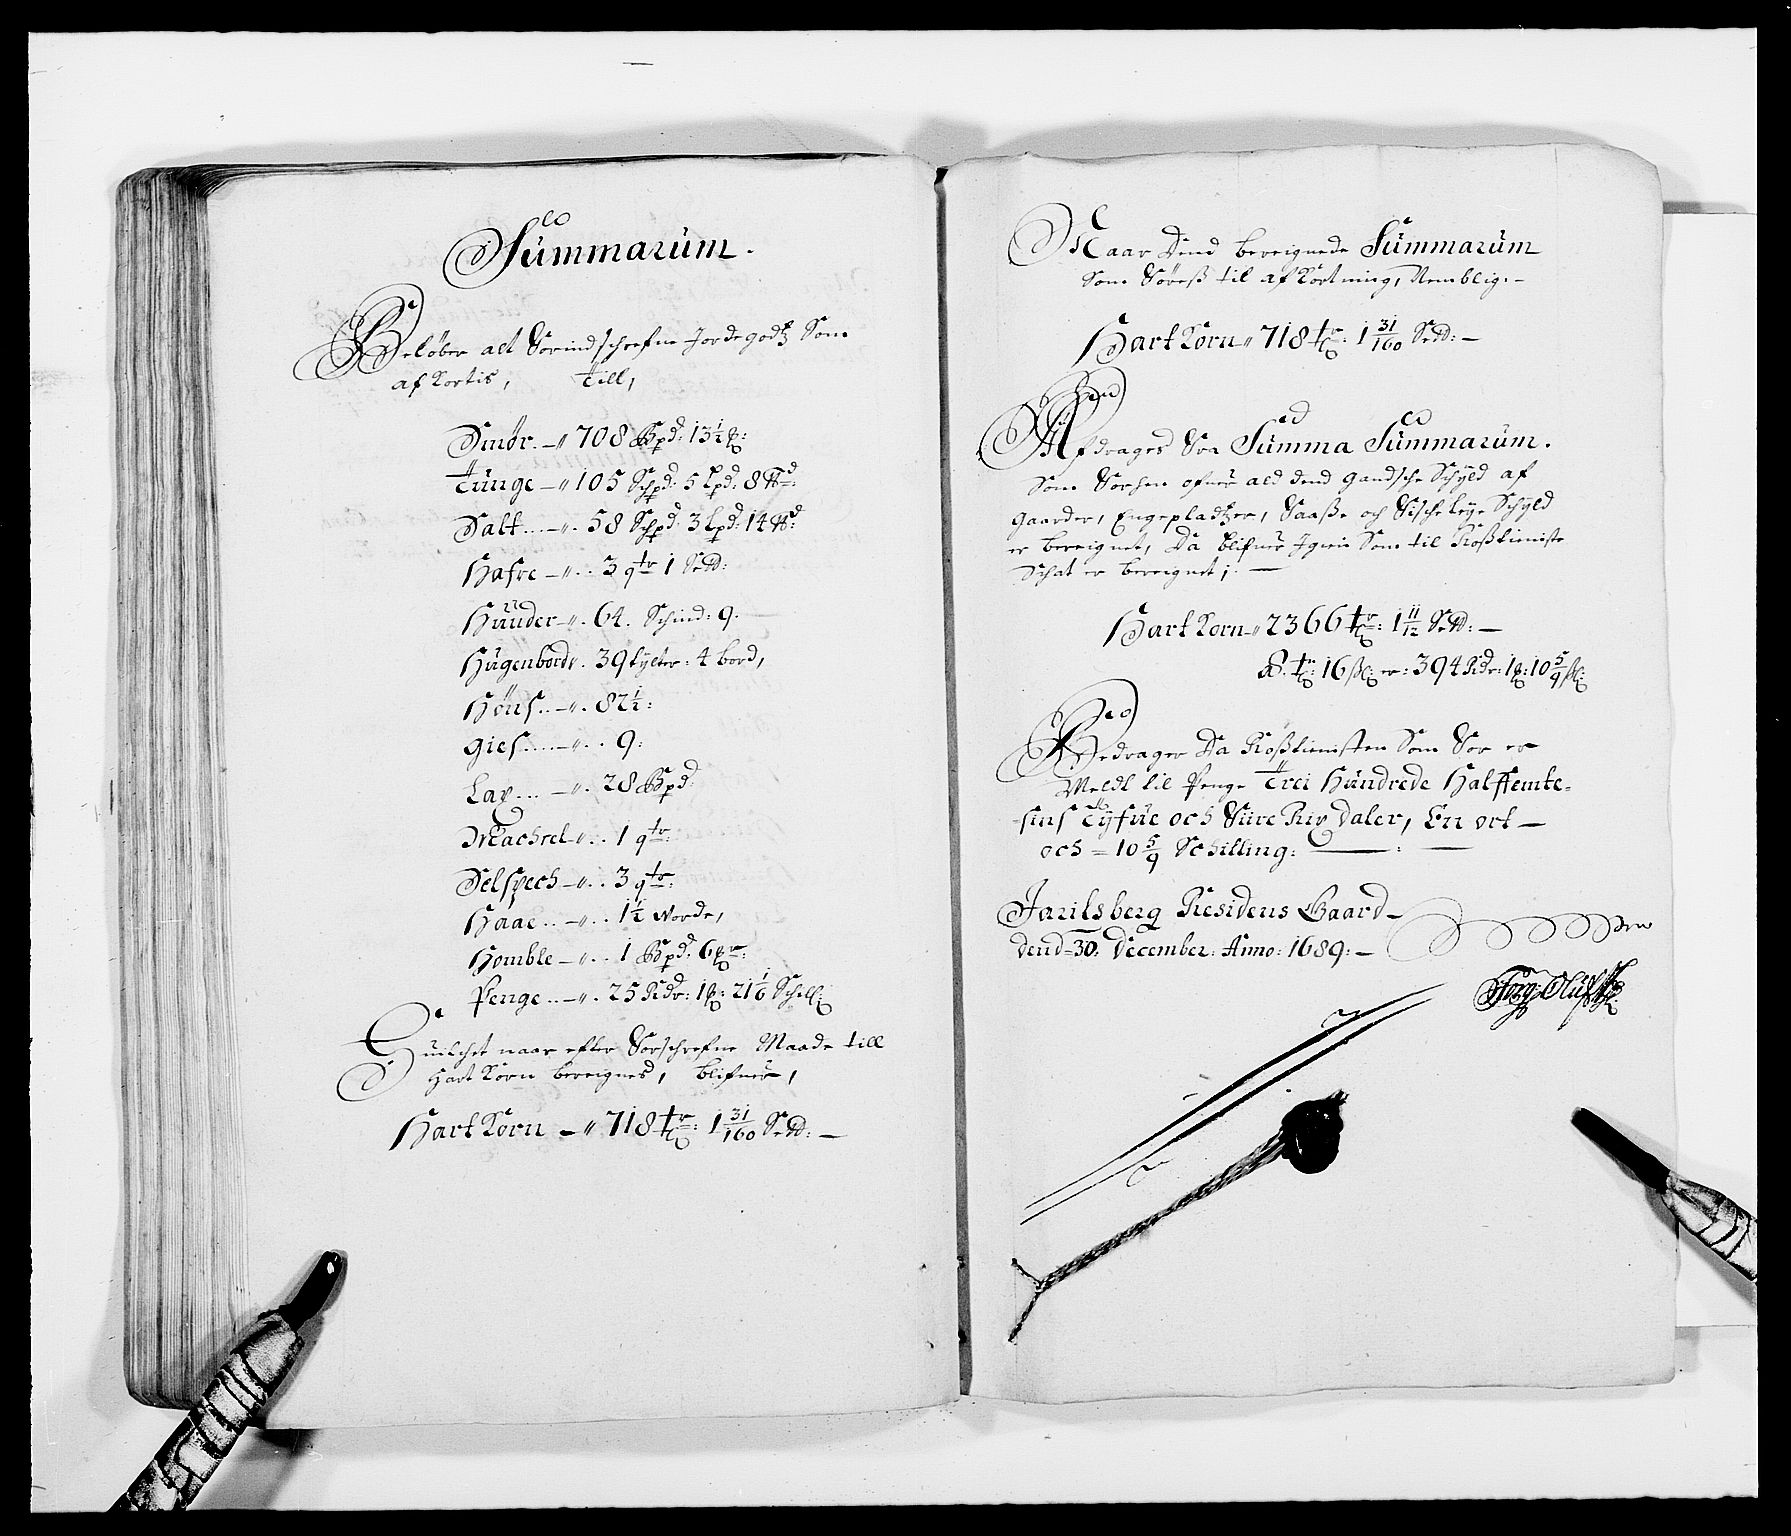 Summarum.
Beløber alt Forindschrefne Jordegodtz Som
afkortis, Till,
Smör. — „ 708 Bpd: 13½ ß:
Tunge — „ 105 Schpd: 5 Lpd: 8 Md:
Salt... — „. 58 Schpd: 3 Lpd: 14 Md:
Hafre — „.. 3 qtr 1 Sett:
Hüüder — „. 64. Schind: 9. —
Hugenbord „. 39 tylter: 4 bord,
Höns.. — „. 82½:
Gies..... — „.. 9:
Lax... — „. 28 Bpd
Machrel — „.. 1 qtr:
Selspech — „.. 3 qtr:
Haae.. — „.. 1½ Vorde,
Homble — „.. 1 Bpd. 6 mrk:
Penge.. — „. 25 Rdr: 1 ß: 21⅙ Schill:
Huilchet naar efter Forschrefne Maade till
Hart Korn bereignes, blifuer,
Hart Korn — „ 718 tr: 1 31/160 Sett: —
Naar dend bereignede Summarum
Som Föres til afkortning, Nemblig: —
Hart Korn „ 718 tr: 1 31/160 Sett: —
Afdrages fra Summa Summarum.
Som Forhen ofuer ald dend gandsche Schyld af
gaarder, Engepladtzer, Saufße och Fischeleye Schyld
er bereignet, Da blifuer Igien Som til Roßtieniste
Schat er bereignet; —
Hart Korn „ 2366 tr: 1 11/12 Sett: —
A. tr: 16 ßl: er: 394 Rdr: 1 ß: 10 5/9 ßl:
Bedrager Da Roßtienisten Som For er
Meldt til Penge Trei Hundrede Halffemte-
sins Tyfue och Fiire Rix daler, En ort —
och = 10 5/9 Schilling: — : —
Jarlsberg Residens Gaard —
dend = 30: December: Anno: 1689: —